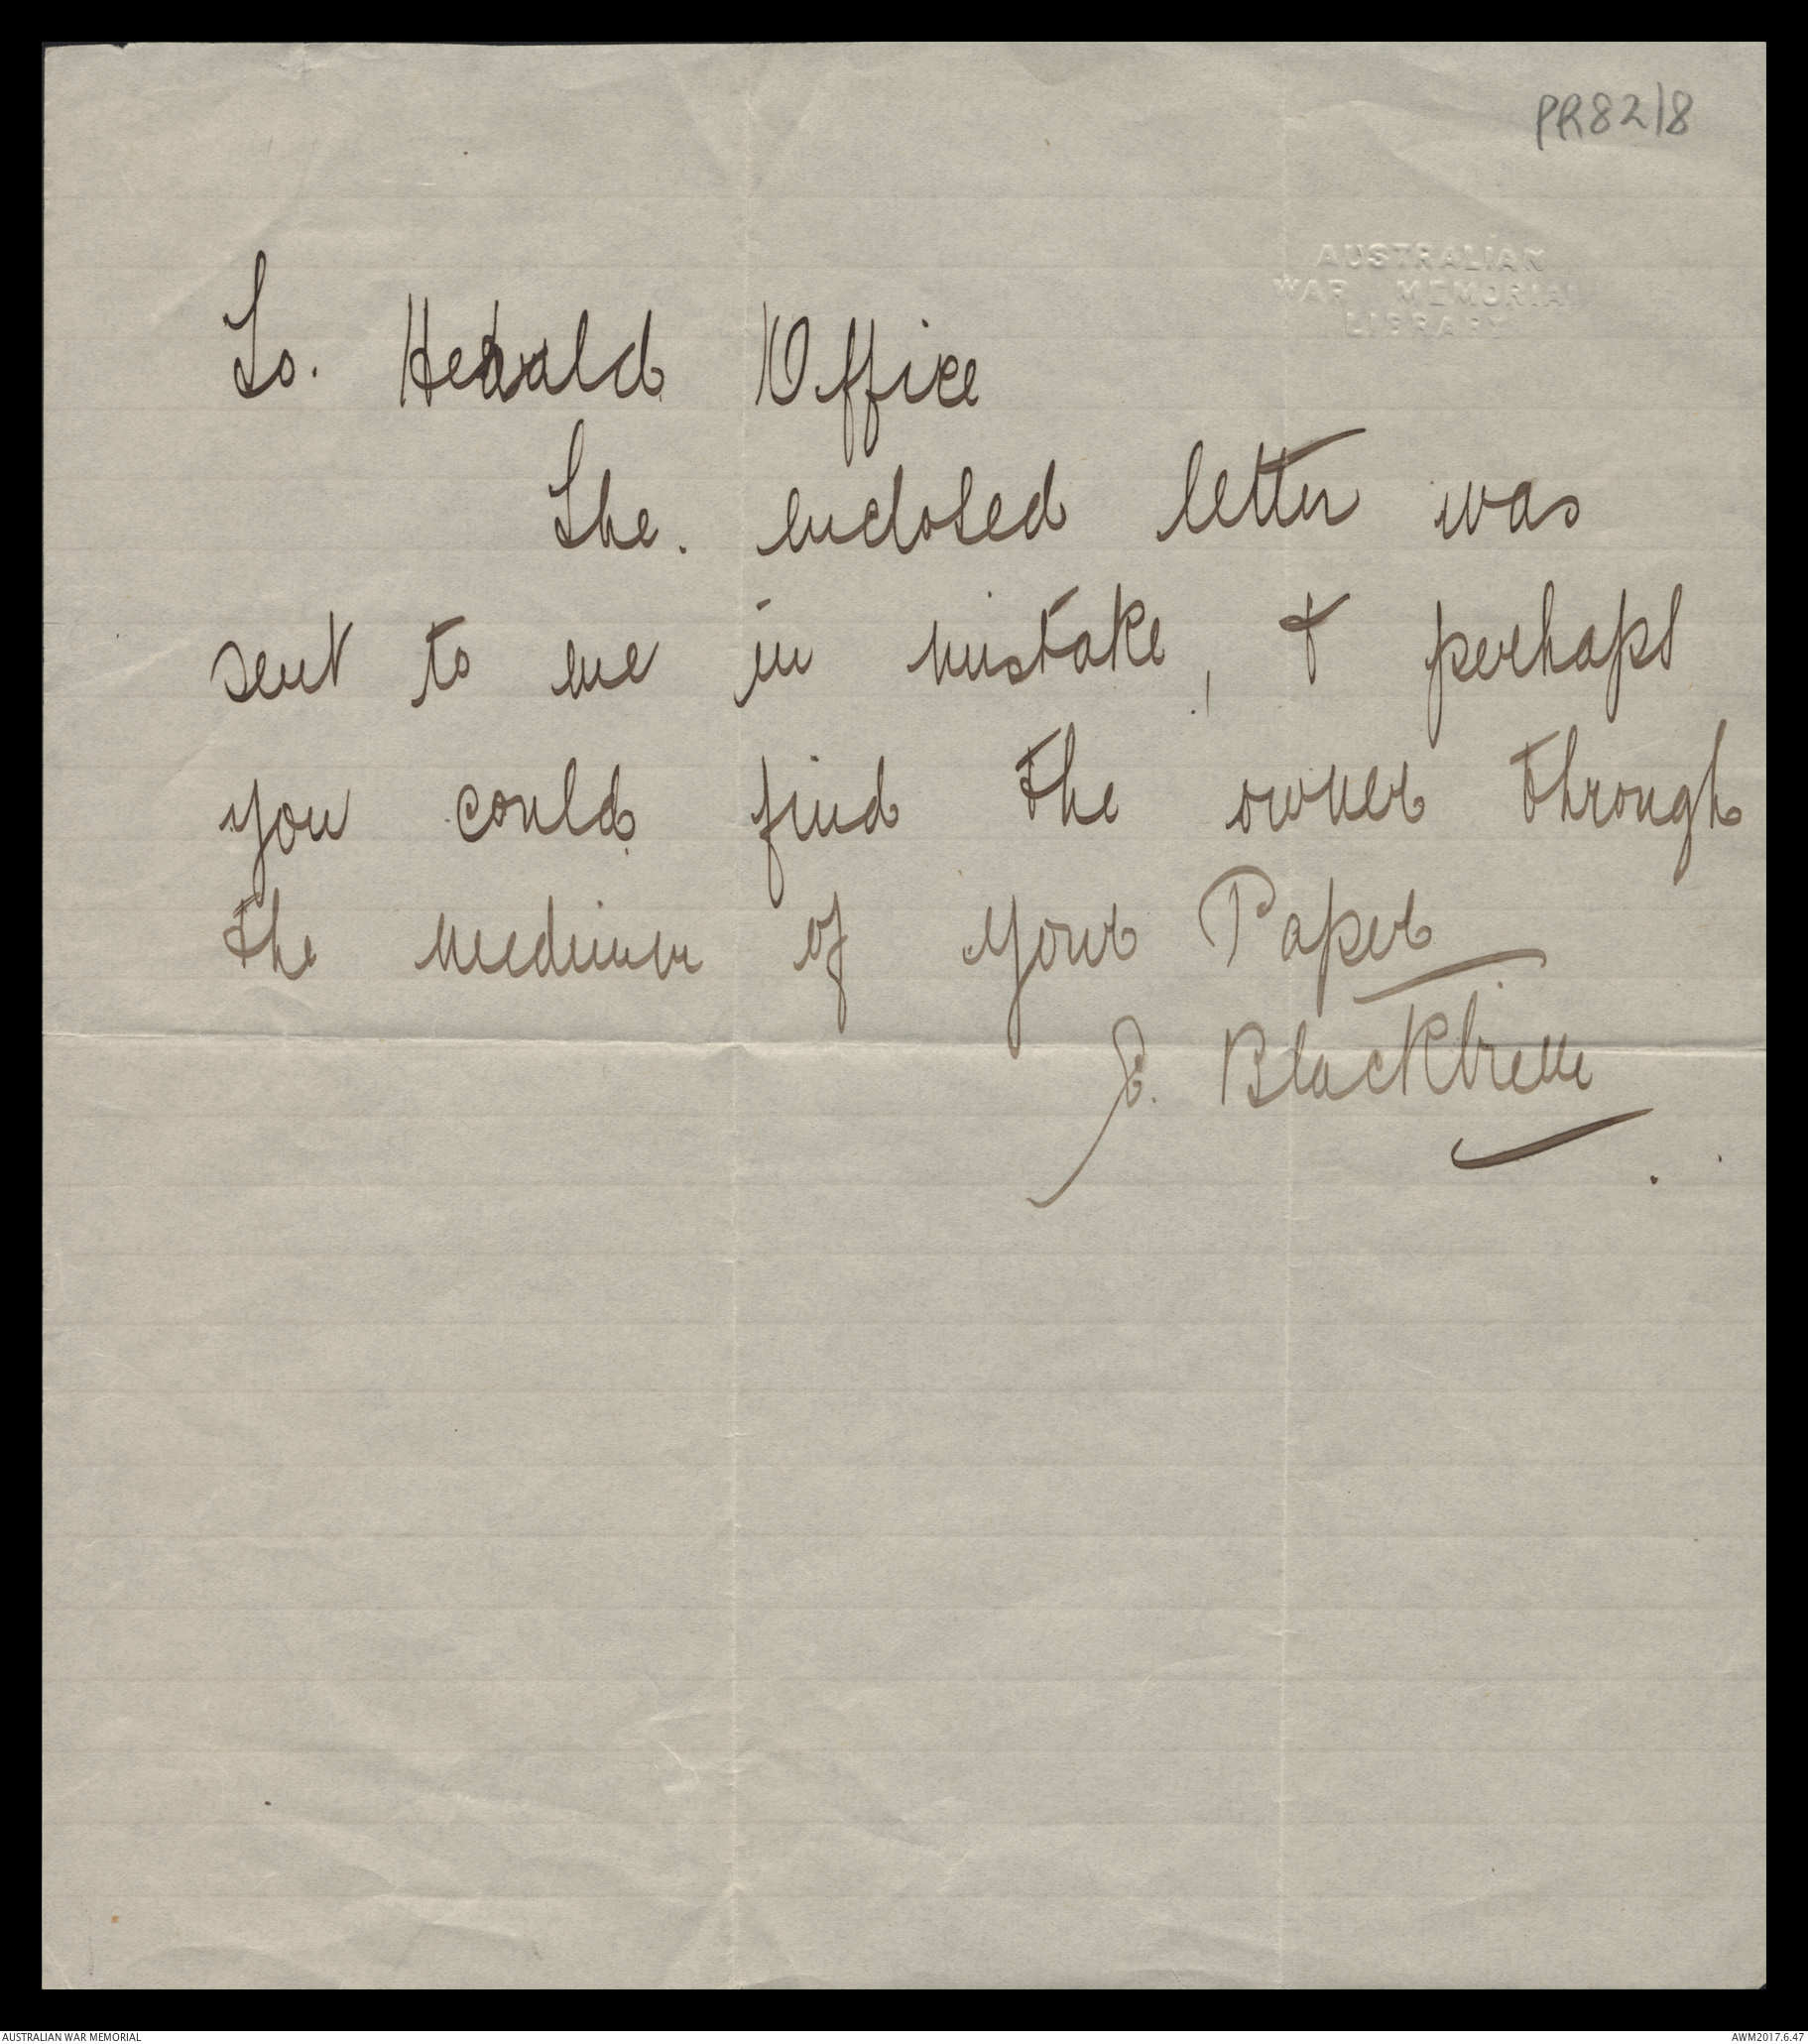 PR82/8
AUSTRALIAN
WAR MEMORIAL
LIBRARY
To. Herald Office
The. enclosed letter was
sent to me in mistake, & perhaps
you could find the owner through
the medium of your Paper
Blackburn
AUSTRALIAN WAR MEMORIAL
AWM2017.6.47